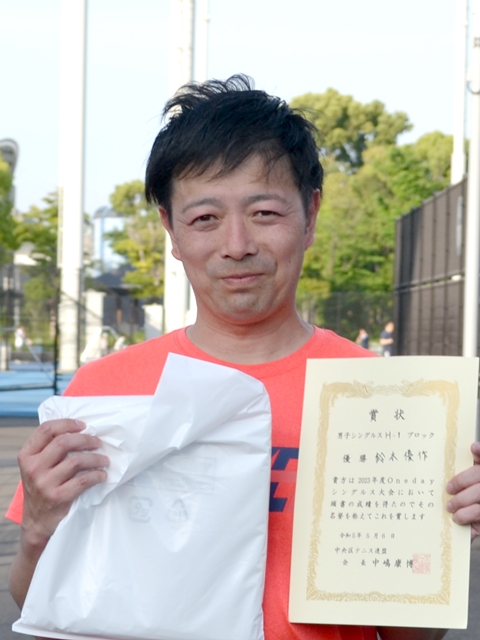 賞状
男子シングルスH-1 ブロック
優勝 鈴木優作
貴方は2023年度Oneday
シングルス大会において
頭書の成績を得たのでその
名誉を称えてこれを賞します
令和5年5月6日
中央区テニス連盟
会長 中嶋康博